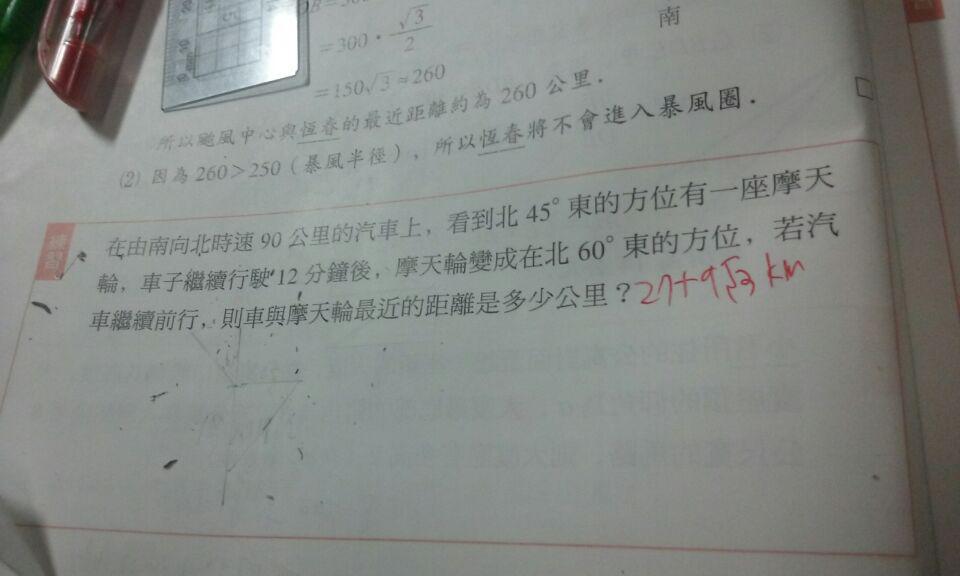 =300·√3/2
南
=150√3≈260
所以颱風中心與恆春的最近距離約為 260 公里.
(2) 因為 260＞250（暴風半徑），所以恆春將不會進入暴風圈.
練習
在由南向北時速 90 公里的汽車上，看到北 45° 東的方位有一座摩天
輪，車子繼續行駛 12 分鐘後，摩天輪變成在北 60° 東的方位，若汽
車繼續前行，則車與摩天輪最近的距離是多少公里？27+9√3 km